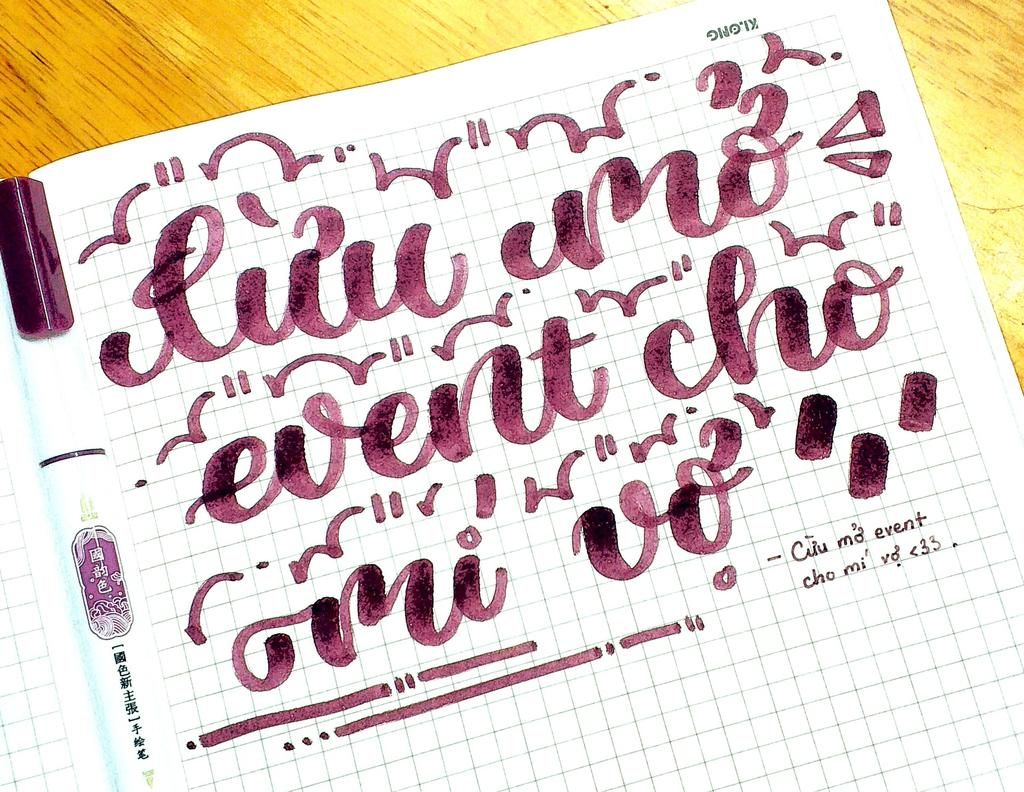 KLONG
Cừu mở
event cho
mí vợ
- Cừu mở event
cho mí vợ <33 .
國韵色
[國色新主張]手绘笔